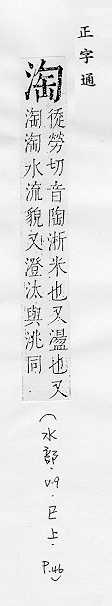 正字通
淘
徒勞切音陶淅米也又盪也又
淘淘水流貌又澄汰與洮同.
(水部.V.9.巳上.P.46)